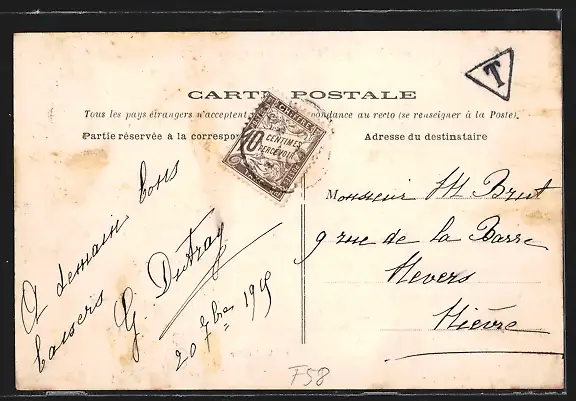 CARTE POSTALE
Tous les pays étrangers n'acceptent correspondance au recto (se renseigner à la Poste).
Partie réservée à la correspon
Adresse du destinataire
T
10 CENTIMES
À PERCEVOIR
A demain bons
baisers
G. Dutray
20 7bre 1905
Monsieur H Brut
9 rue de la Barre
Nevers
Nièvre
F58